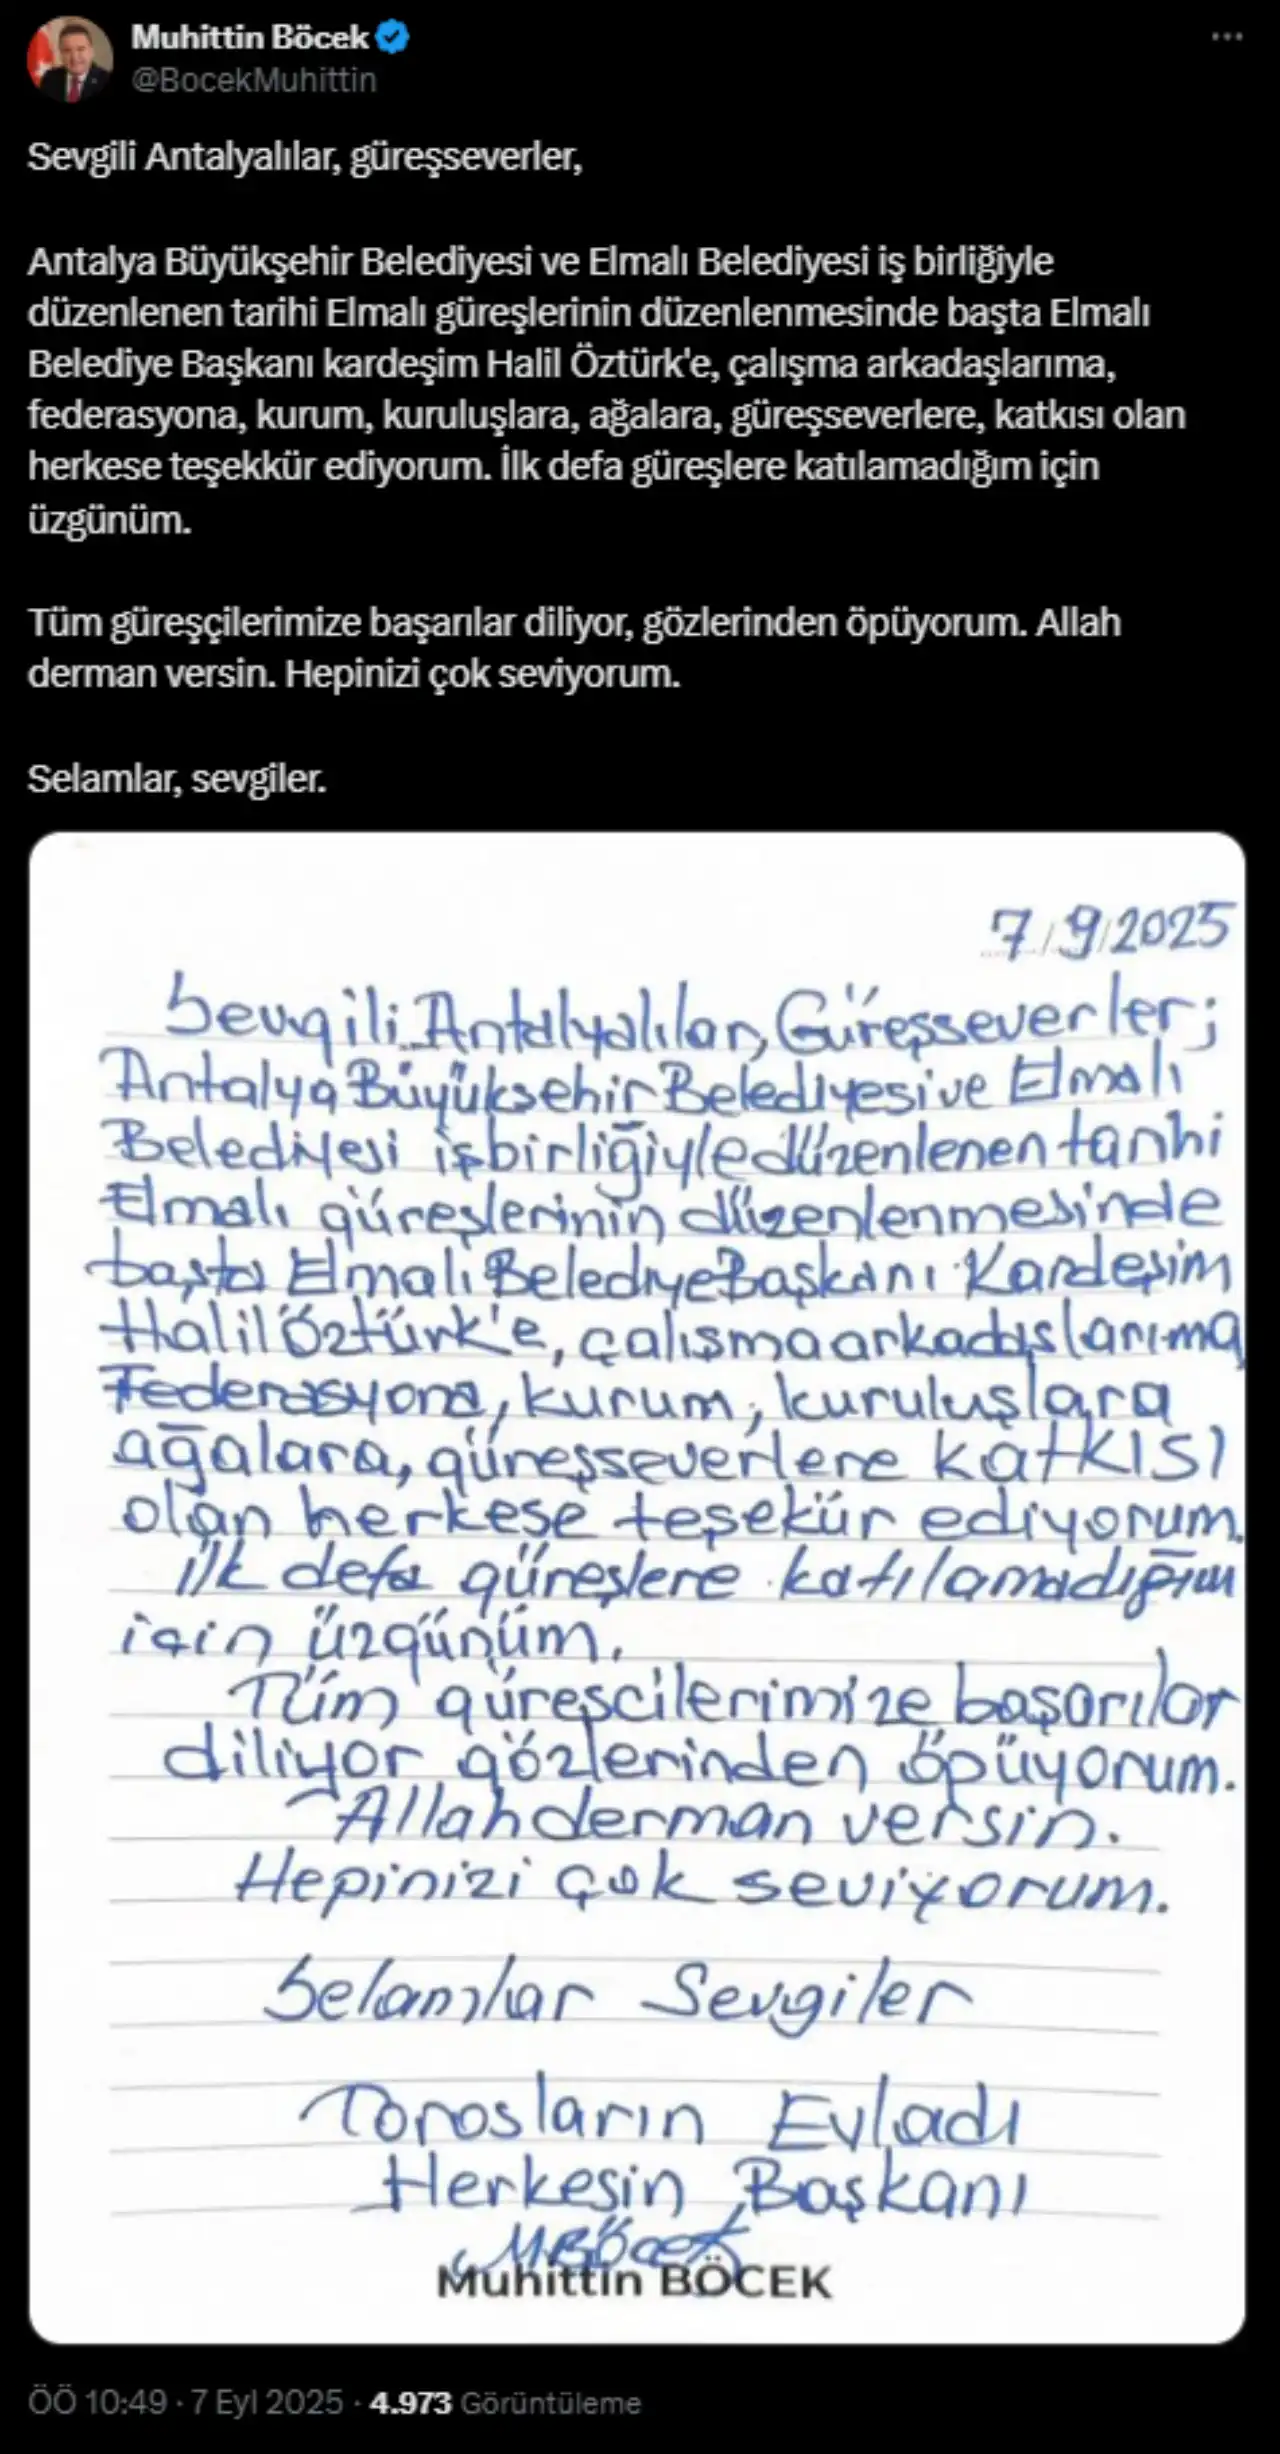 Muhittin Böcek
@BocekMuhittin
Sevgili Antalyalılar, güreşseverler,
Antalya Büyükşehir Belediyesi ve Elmalı Belediyesi iş birliğiyle
düzenlenen tarihi Elmalı güreşlerinin düzenlenmesinde başta Elmalı
Belediye Başkanı kardeşim Halil Öztürk'e, çalışma arkadaşlarıma,
federasyona, kurum, kuruluşlara, ağalara, güreşseverlere, katkısı olan
herkese teşekkür ediyorum. İlk defa güreşlere katılamadığım için
üzgünüm.
Tüm güreşçilerimize başarılar diliyor, gözlerinden öpüyorum. Allah
derman versin. Hepinizi çok seviyorum.
Selamlar, sevgiler.
7/9/2025
Sevgili Antalyalılar, Güreşseverler;
Antalya Büyükşehir Belediyesi ve Elmalı
Belediyesi işbirliğiyle düzenlenen tarihi
Elmalı güreşlerinin düzenlenmesinde
başta Elmalı Belediye Başkanı Kardeşim
Halil Öztürk'e, çalışma arkadaşlarıma,
Federasyona, kurum, kuruluşlara
ağalara, güreşseverlere katkısı
olan herkese teşekür ediyorum.
ilk defa güreşlere katılamadığım
için üzgünüm.
Tüm güreşcilerimize başarılar
diliyor gözlerinden öpüyorum.
Allah derman versin.
Hepinizi çok seviyorum.
Selamlar Sevgiler
Torosların Evladı
Herkesin Başkanı
MBöcek
Muhittin BÖCEK
ÖÖ 10:49 · 7 Eyl 2025 · 4.973 Görüntüleme